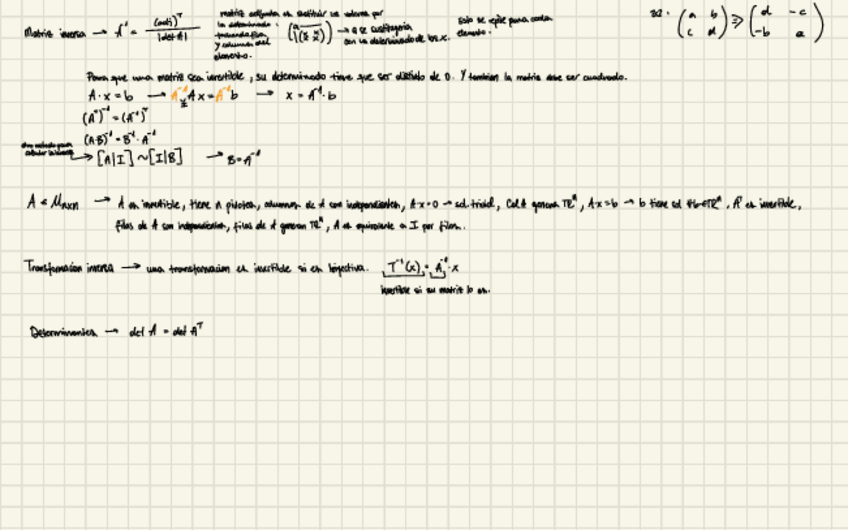 Matriz inversa → A⁻¹ = (adj)ᵀ / |det A|
matriz adjunta es sustituir los valores por
los determinantes
tachando fila
y columna del
elemento.
→ a se sustituye
con la determinante de los x.
Esto se repite para cada
elemento.
2x2: (a b / c d) ⇒ (d -c / -b a)
Para que una matriz sea invertible, su determinado tiene que ser distinto de 0. Y tambien la matriz debe ser cuadrada.
A·x = b → A⁻¹Ax = A⁻¹b → x = A⁻¹·b
I
(Aᵀ)⁻¹ = (A⁻¹)ᵀ
(A·B)⁻¹ = B⁻¹·A⁻¹
otro metodo para
calcular la inversa → [A|I] ~ [I|B] → B = A⁻¹
A ∈ Mₙₓₙ → A es invertible, tiene n pivotes, columnas de A son independientes, A·x=0 → sol. trivial, Col A genera ℝⁿ, A·x=b → b tiene sol ∀b∈ℝⁿ, Aᵀ es invertible,
filas de A son independientes, filas de A generan ℝⁿ, A es equivalente a I por filas.
Transformacion inversa → una transformacion es invertible si es biyectiva. T⁻¹(x) = A⁻¹·x
invertible si su matriz lo es.
Determinantes → det A = det Aᵀ